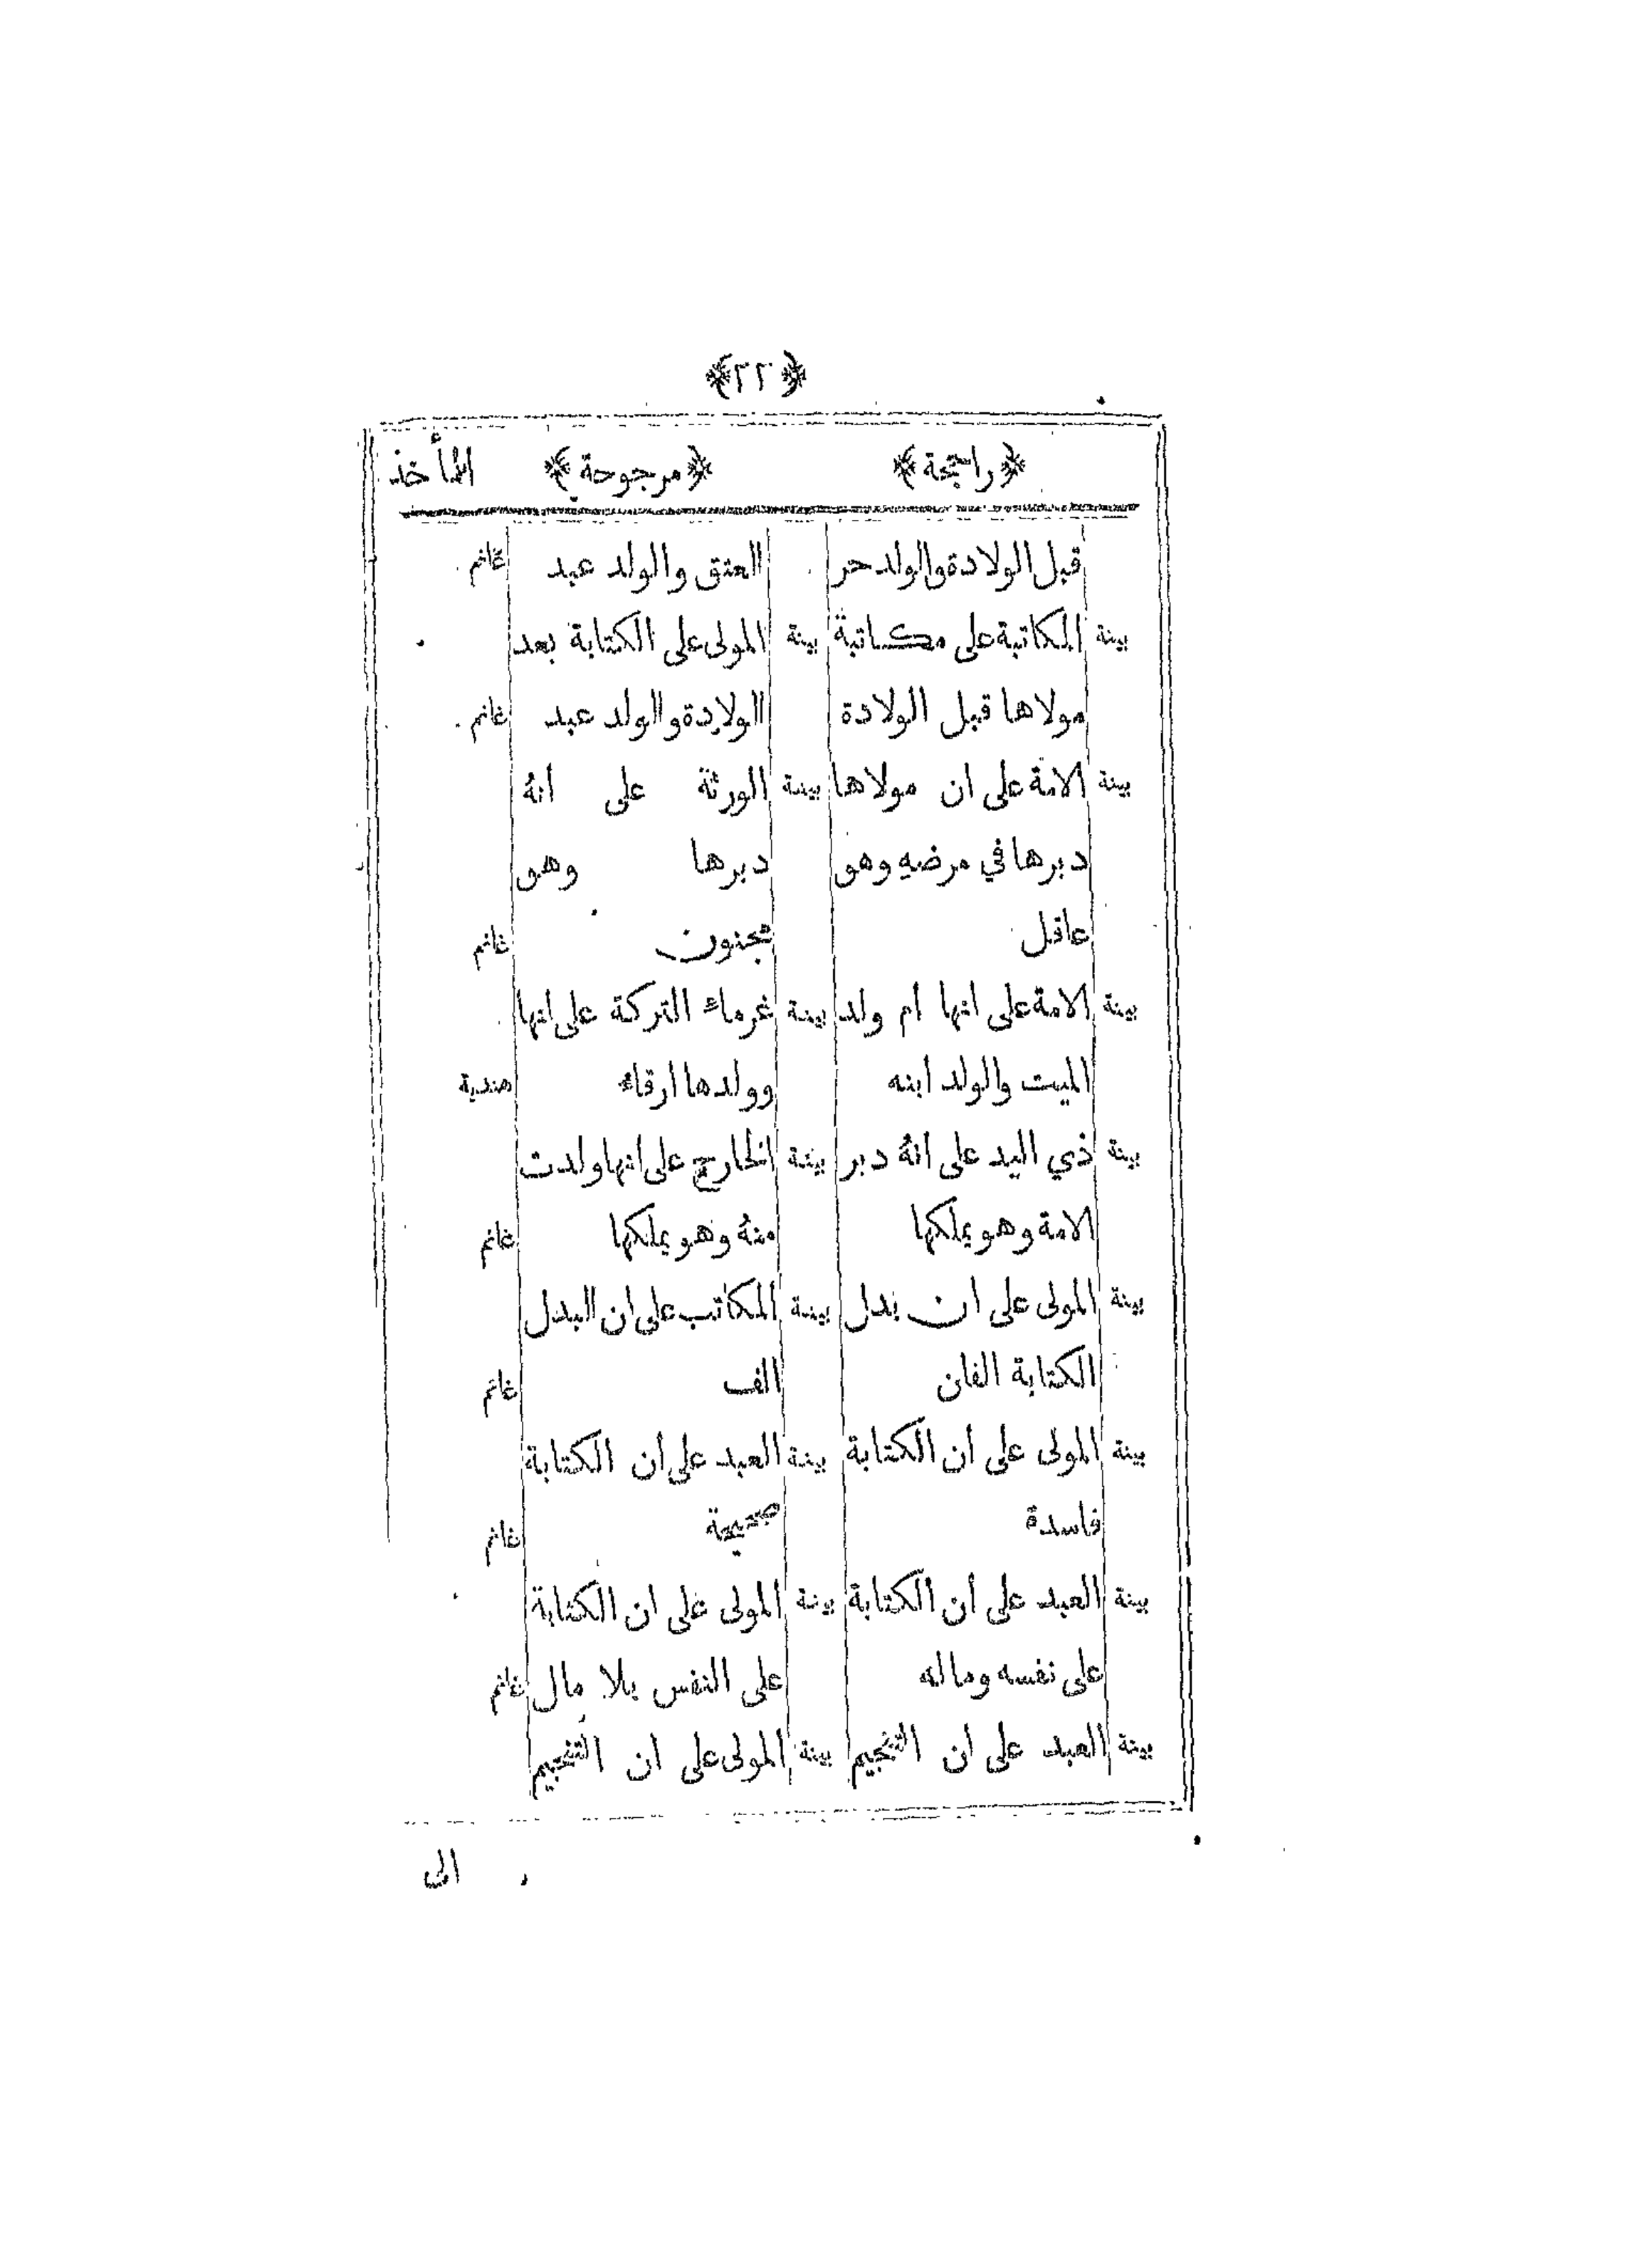 ﴿٢٢﴾
﴿راجحة﴾ ﴿مرجوحة﴾ المأخذ
قبل الولادة والولد حر العتق والولد عبد غانم
بينة المكاتبة على مكاتبة بينة المولى على الكتابة بعد
مولاها قبل الولادة الولادة والولد عبد غانم
بينة الامة على ان مولاها بينة الورثة على انهُ
دبرها في مرضهِ وهو دبرها وهو
عاقل مجنون غانم
بينة الامة على انها ام ولد بينة غرماء التركة على انها
الميت والولد ابنه وولدها ارقاء هندية
بينة ذي اليد على انهُ دبر بينة الخارج على انها ولدت
الامة وهو يملكها منهُ وهو يملكها غانم
بينة المولى على ان بدل بينة المكاتب على ان البدل
الكتابة الفان الف غانم
بينة المولى على ان الكتابة بينة العبد على ان الكتابة
فاسدة صحيحة غانم
بينة العبد على ان الكتابة بينة المولى على ان الكتابة
على نفسه وماله على النفس بلا مال غانم
بينة العبد على ان التنجيم بينة المولى على ان التنجيم
الى